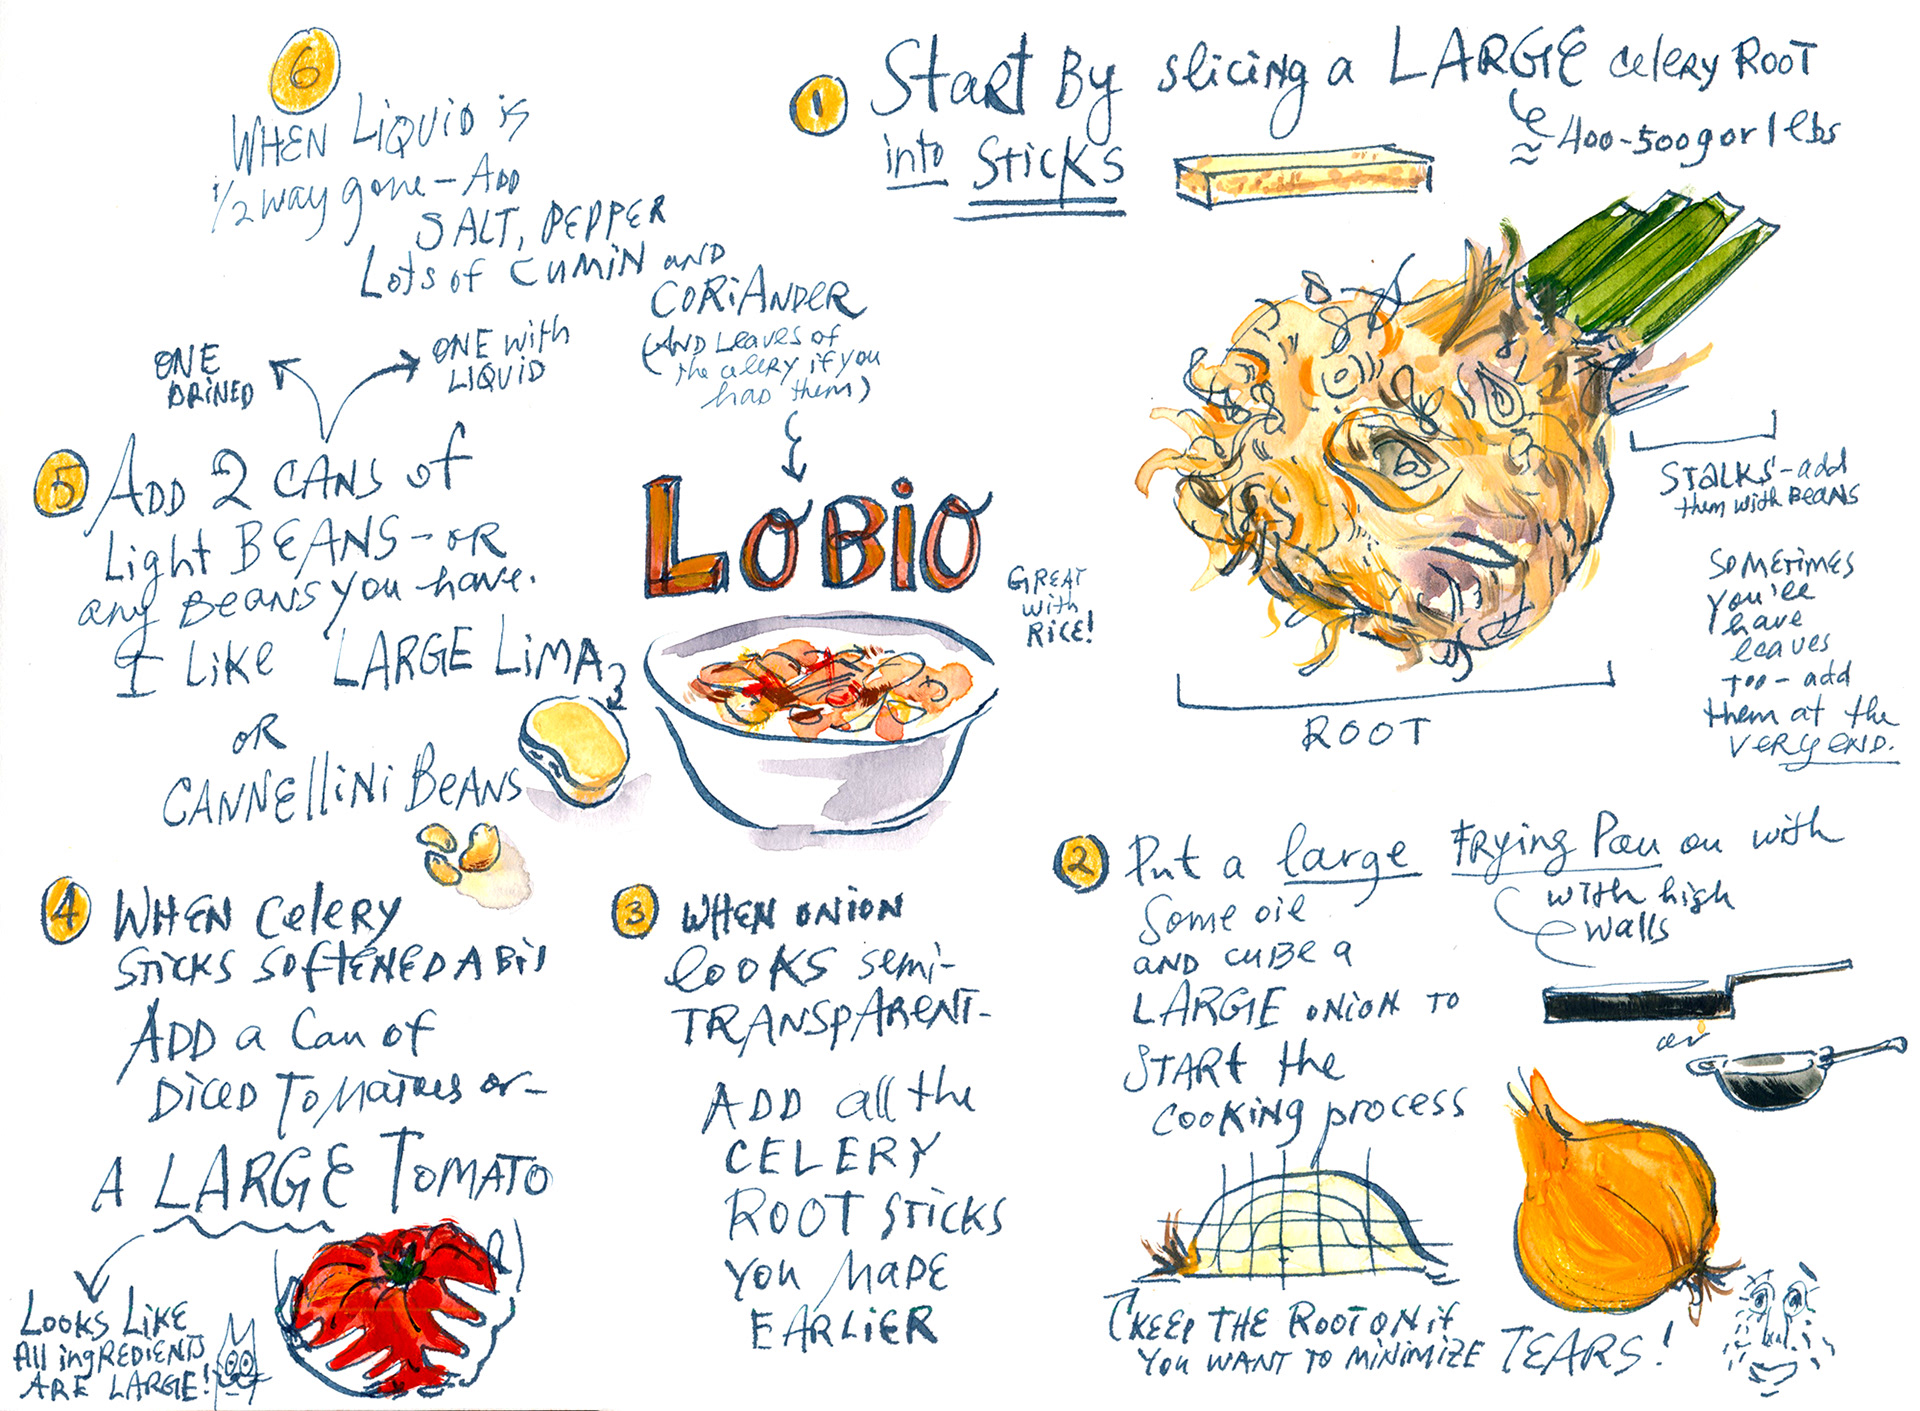 LOBIO
GREAT
with
RICE!
1
Start By slicing a LARGE celery ROOT
≈ 400-500g or 1 lbs
into STICKS
STALKS - add
them with BEANS
SOMETIMES
you'll
have
leaves
too - add
them at the
VERY END.
ROOT
2
Put a large Frying Pan on with
with high
walls
Some oil
AND CUBE a
LARGE ONION TO
START the
COOKING process
or
KEEP THE ROOT ON if
YOU WANT TO MINIMIZE TEARS!
3
WHEN ONION
looks semi-
TRANSPARENT-
ADD all the
CELERY
ROOT STICKS
YOU MADE
EARLIER
4
WHEN Celery
STICKS SOFTENED A BIT
ADD a Can of
DICED TOMATOES or-
A LARGE TOMATO
LOOKS LIKE
All ingREDIENTS
ARE LARGE!
5
ADD 2 CANS of
Light BEANS - OR
any BEANS you have.
I LIKE LARGE LIMA
OR
CANNELLINI BEANS
ONE
DRINED
ONE with
LIQUID
6
WHEN LIQUID is
1/2 way gone - ADD
SALT, PEPPER
Lots of CUMIN AND
CORIANDER
(AND LEAVES of
the celery if you
had them)